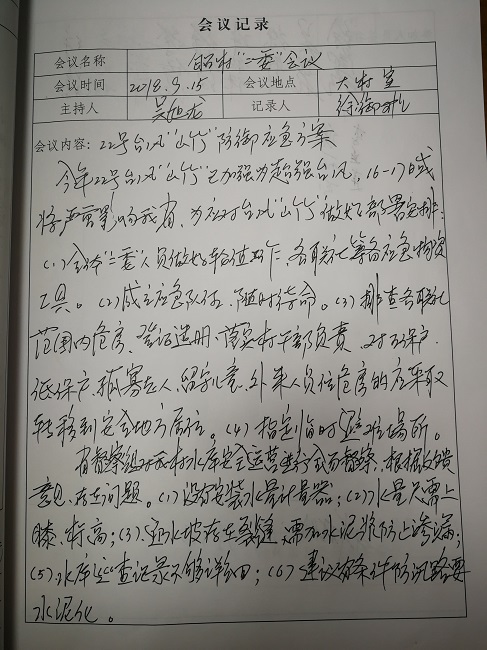 会议记录
会议名称 村“二委”会议
会议时间 2018.9.15 会议地点 大村室
主持人 吴旭龙 记录人 徐御
会议内容：22号台风“山竹”防御应急方案
今年22号台风“山竹”已加强为超强台风，16-17日或
将严重影响我省，为应对台风“山竹”做好部署安排：
(1)全体“二委”人员做好轮值工作，各联社筹备应急物资
工具。(2)成立应急队伍，随时待命。(3)排查各联社
范围内危房、登记造册、落实村干部负责，对五保户、
低保户、孤寡老人、留守儿童、外来人员住危房的应采取
转移到安全地方居住。(4)指定临时避难场所。
省督察组对我村水库安全运营进行全面督察，根据反馈
意见，存在问题。(1)没有安装水量计量器；(2)水量尺需上
漆、标高；(3)迎水坡存在裂缝，需加水泥浆防止渗漏；
(5)水库巡查记录不够详细；(6)建议有条件防汛路要
水泥化。